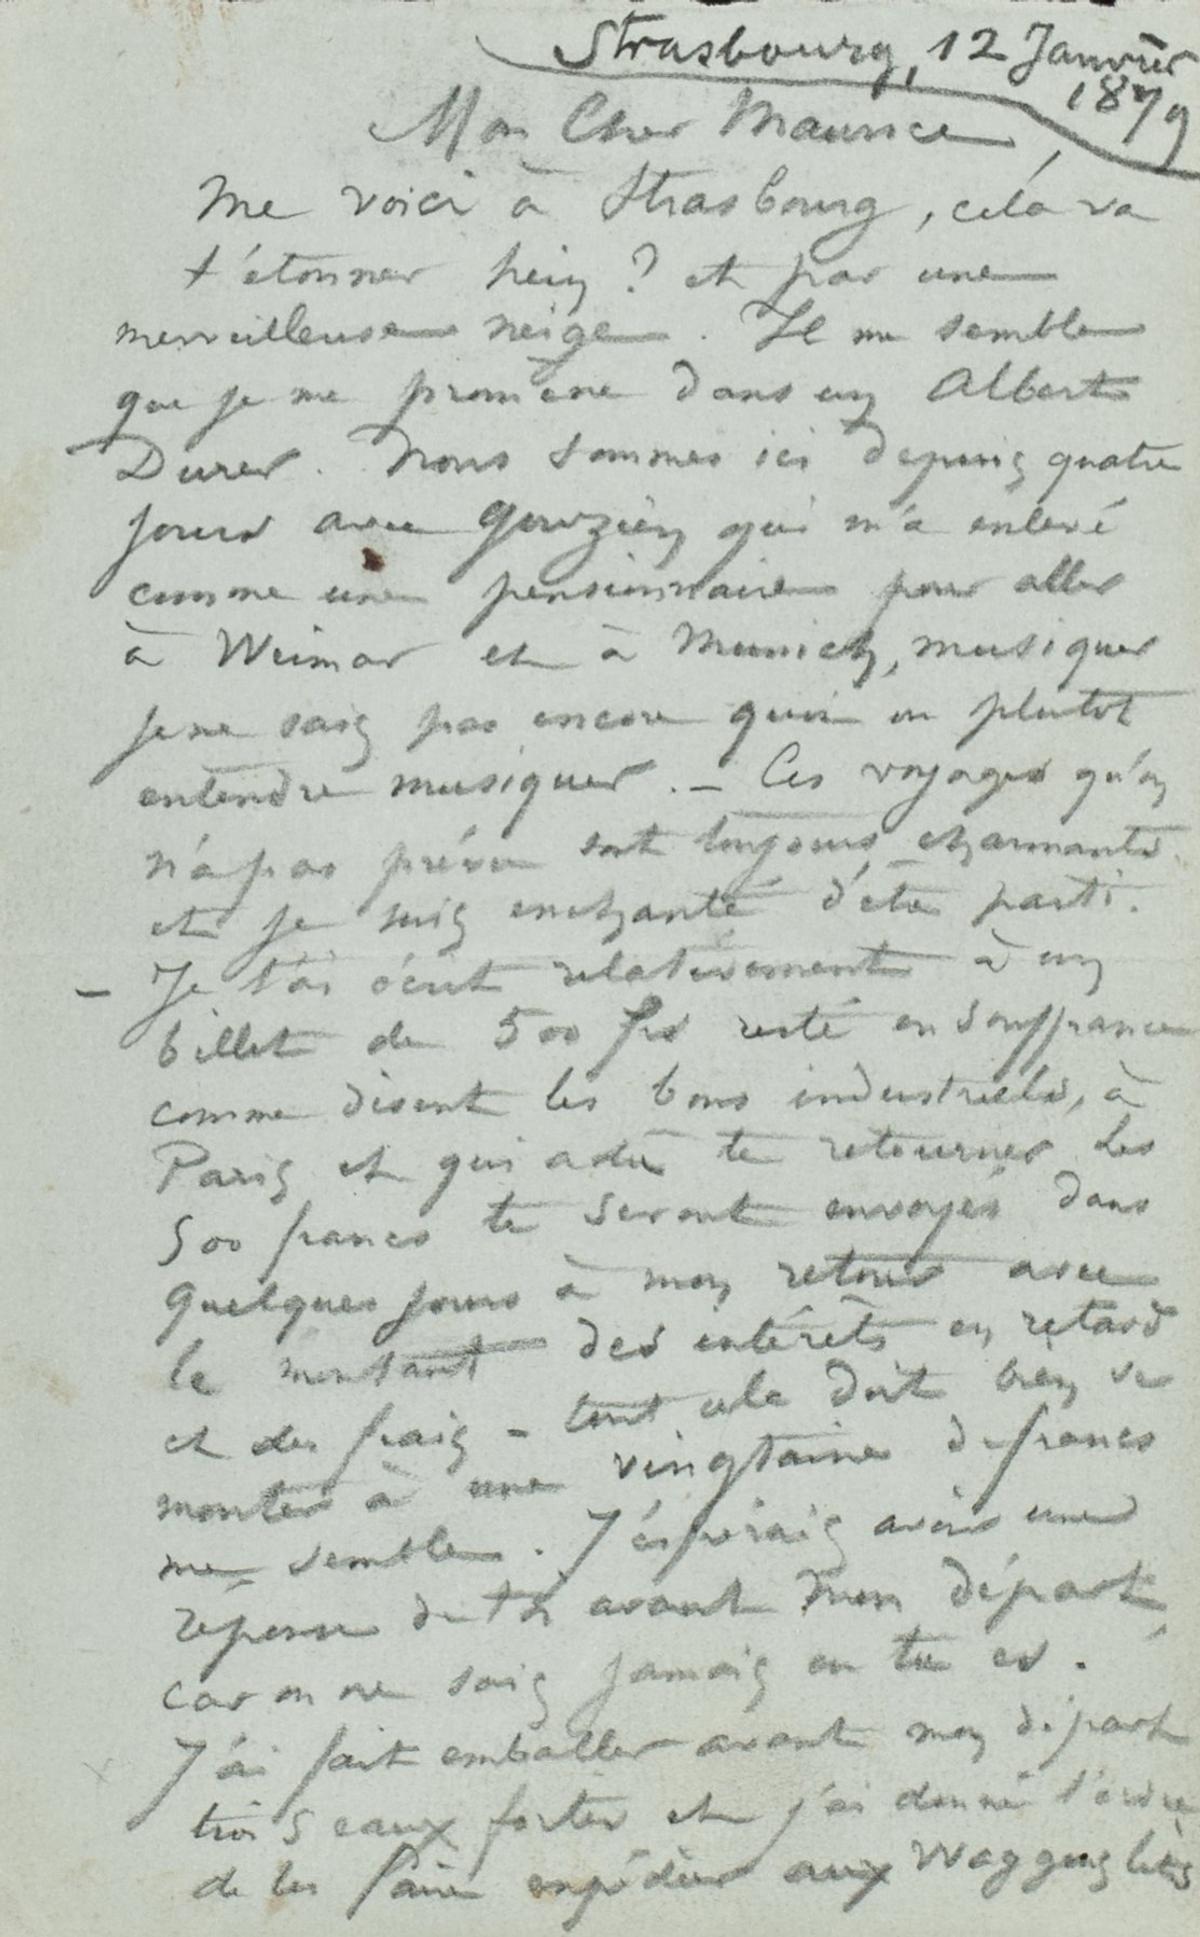 Strasbourg, 12 Janvier
1879
Mon Cher Maurice,
Me voici à Strasbourg, cela va
t'étonner hein ? et par une
merveilleuse neige. Il me semble
que je me promène dans un Albert
Durer. Nous sommes ici depuis quatre
jours avec Gouzien qui m'a enlevé
comme une pensionnaire pour aller
à Weimar et à Munich, musiquer
je ne sais pas encore quoi ou plutot
entendre musiquer. – Ces voyages qu'on
n'a pas prévu sont toujours charmants
et je suis enchanté d'être parti.
– Je t'ai écrit relativement à un
billet de 500 frs resté en souffrance
comme disent les bons industriels, à
Paris et qui a dû te retourner. Les
500 francs te seront envoyés dans
quelques jours à mon retour avec
le montant des intérêts en retard
et des frais – tout cela doit bien se
monter à une vingtaine de francs
me semble. J'éspérais avoir une
réponse de toi avant mon départ,
car on ne sais jamais ou tu es.
J'ai fait emballer avant mon départ
trois eaux fortes et j'ai donné l'ordre
de les faire expédier aux Waggons liés